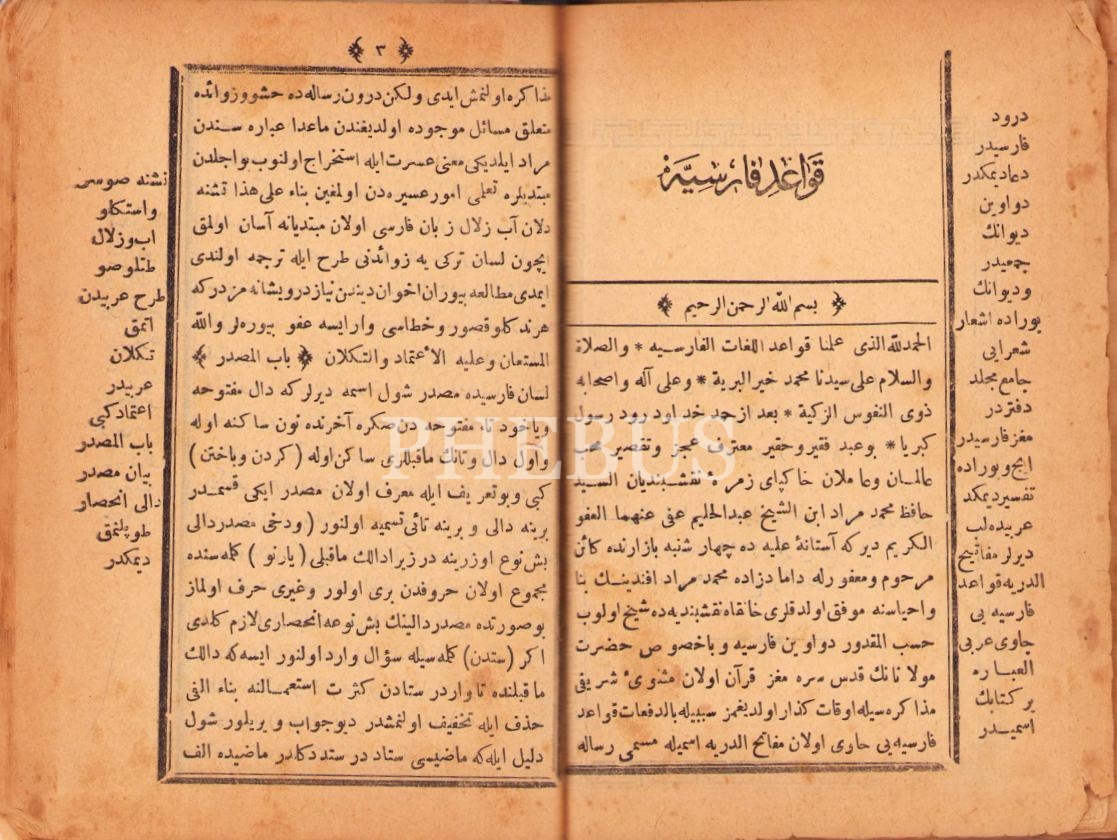 قواعد فارسيه
بسم الله الرحمن الرحيم
الحمدلله الذى علمنا قواعد اللغات الفارسيه * والصلاة
والسلام على سيدنا محمد خير البرية * وعلى آله واصحابه
ذوى النفوس الزكية * بعد از حمد خدا ودرود رسول
كبريا * بو عبد فقير وحقير معترف عجز وتقصير محب
عالمان وعاملان خاكپاى زمرۀ نقشبنديان السيد
حافظ محمد مراد ابن الشيخ عبدالحليم عفى عنهما العفو
الكريم ديركه آستانۀ عليه ده چهار شنبه بازارنده كائن
مرحوم ومغفور له داماد زاده محمد مراد افندينك بنا
واحياسنه موفق اولدقلرى خانقاه نقشبنديه ده شيخ اولوب
حسب المقدور دواوين فارسيه وباخصوص حضرت
مولانانك قدس سره مغز قرآن اولان مثنوئ شريفى
مذاكره سيله اوقات كذار اولديغمز سببيله بالدفعات قواعد
فارسيه يى حاوى اولان مفاتيح الدريه اسميله مسمى رساله
درود
فارسيدر
دعا ديمكدر
دواوين
ديوانك
جمعيدر
وديوانك
بوراده اشعار
شعرايى
جامع مجلد
دفتردر
مغز فارسيدر
ايچ وبوراده
تفسير ديمكد
عربيده لب
ديرلر مفاتيح
الدريه قواعد
فارسيه يى
حاوى عربى
العباره
بر كتابك
اسميدر
٣
مذاكره اولنمش ايدى ولكن درون رساله ده حشو وزوائده
متعلق مسائل موجوده اولديغندن ماعدا عباره سندن
مراد ايلديكى معنى عسرت ايله استخراج اولنوب بو اجلدن
مبتديلره تعلمى امور عسيره دن اولمغين بناء على هذا تشنه
دلان آب زلال زبان فارسى اولان مبتديانه آسان اولمق
ايچون لسان تركى يه زوائدنى طرح ايله ترجمه اولندى
ايمدى مطالعه بيوران اخوان ديندن نياز درويشانه مزدركه
هرنه كلو قصور وخطاسى وار ايسه عفو بيوره لر والله
المستعان وعليه الاعتماد والتكلان ﴿ باب المصدر ﴾
لسان فارسيده مصدر شول اسمه ديرلر كه دال مفتوحه
وياخود تاء مفتوحه دن صكره آخرنده نون ساكنه اوله
واول دال وتانك ماقبللرى ساكن اوله (كردن وباختن)
كبى وبو تعريف ايله معرف اولان مصدر ايكى قسمدر
برينه دالى و برينه تائى تسميه اولنور (ودخى مصدر دالى
بش نوع اوزرينه در زيرا دالك ماقبلى (يارنو) كلمه سنده
مجموع اولان حروفدن برى اولور وغيرى حرف اولماز
بو صورتده مصدر دالينك بش نوعه انحصارى لازم كلدى
اكر (ستدن) كلمه سيله سؤال وارد اولنور ايسه كه دالك
ماقبلنده تا واردر ستادن كثرت استعمالنه بناء الفى
حذف ايله تخفيف اولنمشدر ديو جواب ويريلور شول
دليل ايله كه ماضيسى ستاد در ستد دكلدر ماضيده الف
تشنه صوسز
واستكلو
اب وزلال
طتلو صو
طرح عربيدن
اتمق
تكلان
عربيدر
اعتماد كبى
باب المصدر
بيان مصدر
دالى انحصار
طوپلنمق
ديمكدر
PHEBUS